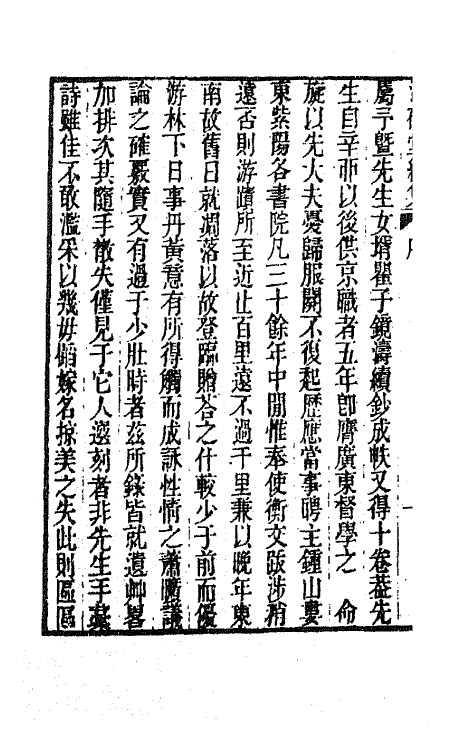 屬予暨先生女壻瞿子鏡濤續鈔成帙又得十卷葢先
生自辛卯以後供京職者五年卽膺廣東督學之　命
旋以先大夫憂歸服闋不復起歷應當事聘主鍾山婁
東紫陽各書院凡三十餘年中閒惟奉使衡文跋涉稍
遠否則游蹟所至近止百里遠不過千里兼以晚年東
南故舊日就凋落以故登臨贈荅之什較少于前而優
游林下日事丹黃意有所得觸而成詠性情之蕭曠議
論之確覈實又有過于少壯時者茲所錄皆就遺艸畧
加排次其隨手散失僅見于它人選刻者非先生手藁
詩雖佳不敢濫采以幾毋蹈嫁名掠美之失此則區區